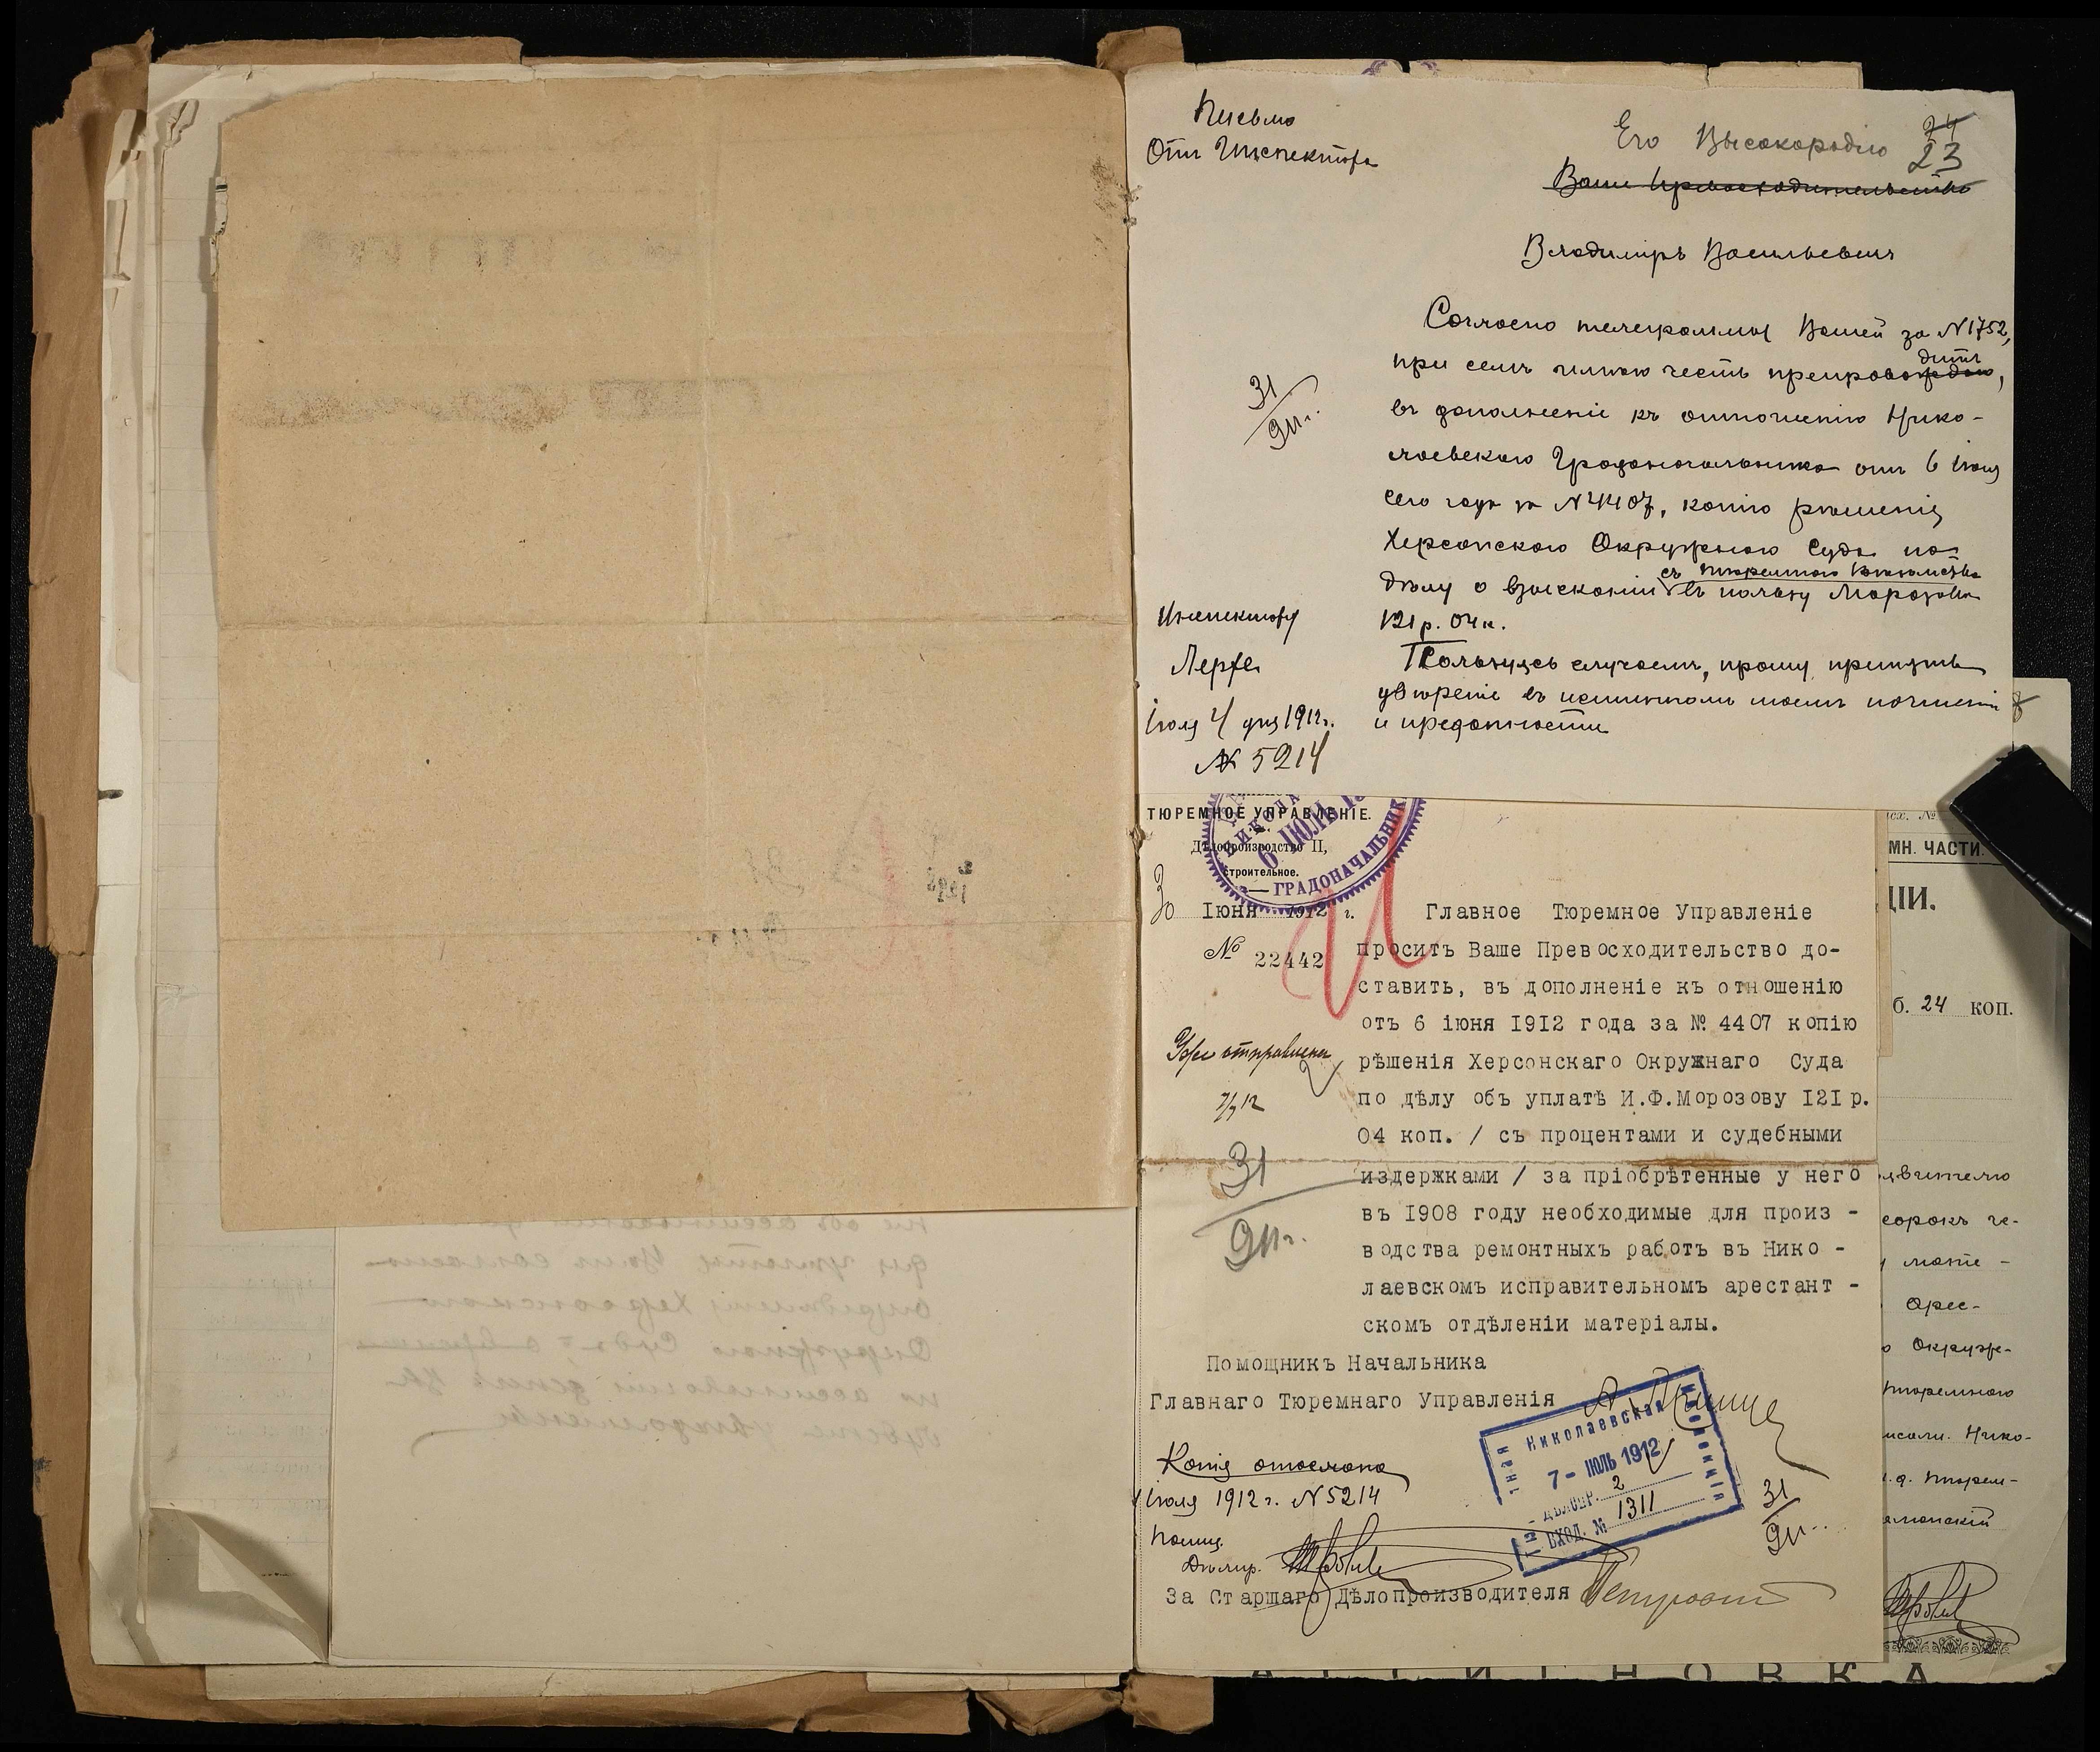 Письмо
Отъ Инспектора
Его Высокородію
24
23
Ваше Превосходительство
Владиміръ Васильевичъ
Согласно телеграммы Вашей за №1752,
при семъ имѣю честь препровождаю,
дить
въ дополненіе къ отношенію Нико-
лаевскаго Градоначальника отъ 6 Іюня
сего года за №4407, копію рѣшенія
Херсонскаго Окружнаго Суда по
дѣлу о взысканіи въ пользу Морозова
съ тюремнаго вѣдомства
121 р. 04 к.
Пользуясь случаемъ, прошу принять
увѣреніе въ истинномъ моемъ почтеніи
и преданности
31
911г.
Инспектору
Лерхе
Іюля 4 дня 1912г.
№ 5214
ТЮРЕМНОЕ УПРАВЛЕНІЕ.
Дѣлопроизводство II,
строительное.
НИКОЛА
6 ІЮЛЬ 1
ГРАДОНАЧАЛЬНИК
30 Іюня 1912 г.
№ 22442
Главное Тюремное Управленіе
проситъ Ваше Превосходительство до-
ставить, въ дополненіе къ отношенію
отъ 6 іюня 1912 года за № 4407 копію
рѣшенія Херсонскаго Окружнаго Суда
по дѣлу объ уплатѣ И.Ф.Морозову 121 р.
04 коп. / съ процентами и судебными
издержками / за пріобрѣтенные у него
въ 1908 году необходимые для произ -
водства ремонтныхъ работъ въ Нико -
лаевскомъ исправительномъ арестант -
скомъ отдѣленіи матеріалы.
Уже отправлена
7/7 12
31
911г.
Помощникъ Начальника
Главнаго Тюремнаго Управленія
Николаевская
7 - ІЮЛЬ 1912
2
ВХОД. № 1311
Копія отослана
4 Іюля 1912 г. №5214
Помощ.
Дѣлопр.
31
911
За Старшаго Дѣлопроизводителя
МН. ЧАСТИ.
ЦИ.
б. 24 коп.
сорокъ че-
мате -
Арес-
Окруж-
тюремнаго
Нико-
тюрем-